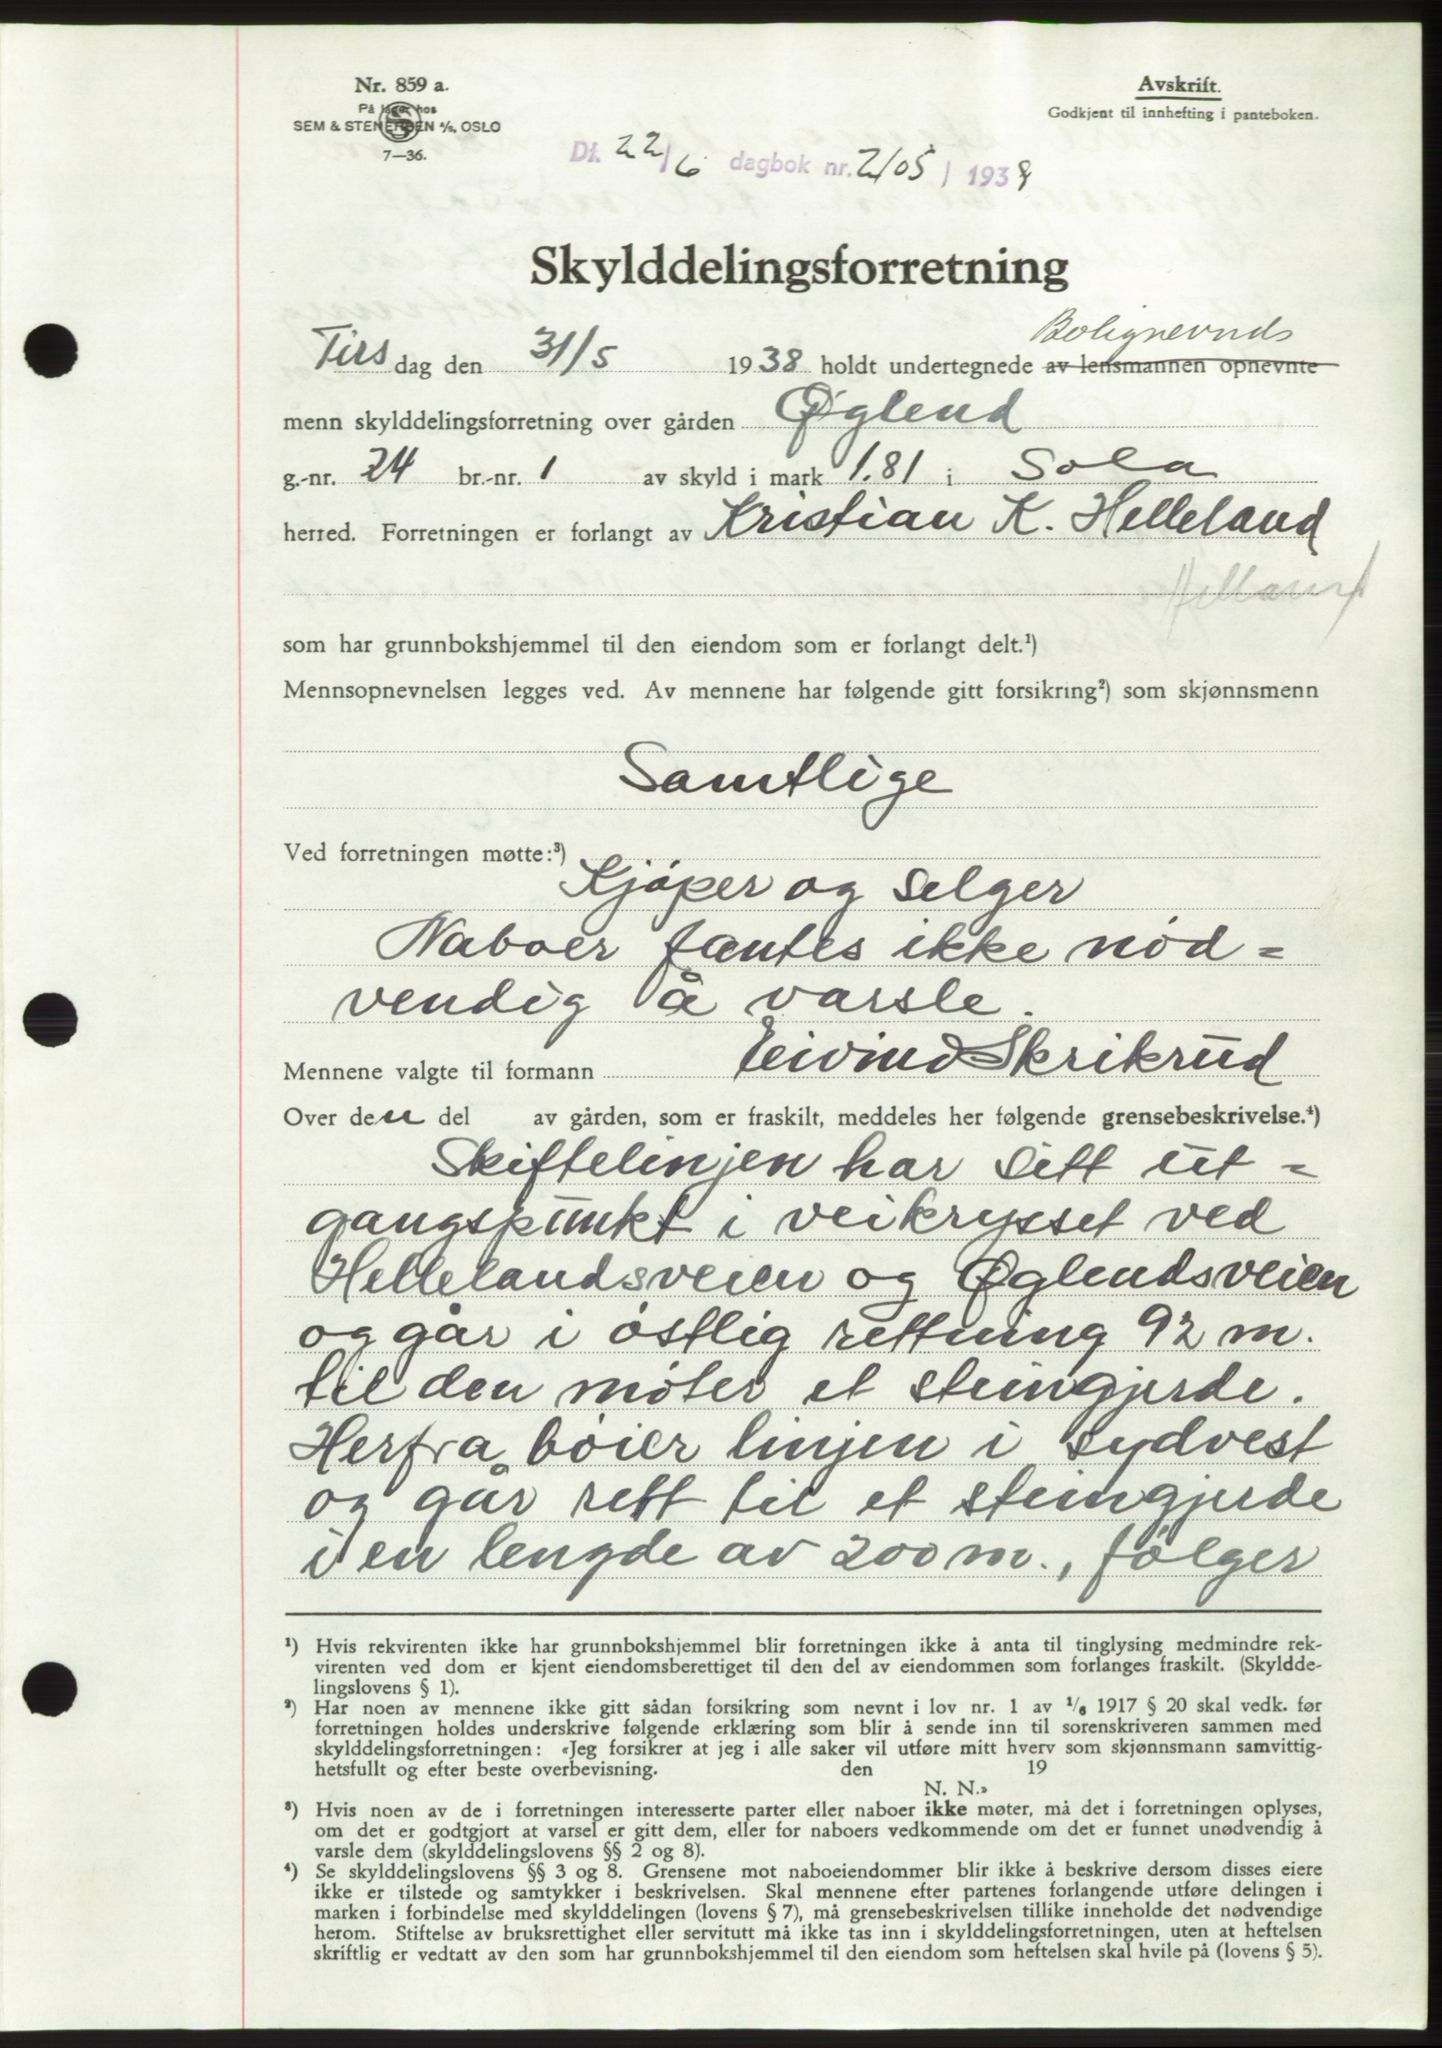 Nr. 859 a.
På lager hos
SEM & STENERSEN A/S, OSLO
7—36.
Avskrift.
Godkjent til innhefting i panteboken.
Df. 22/6 dagbok nr. 2105 / 1938
Skylddelingsforretning
Bolignevnds
Tirs dag den 31/5 1938 holdt undertegnede av lensmannen opnevnte
menn skylddelingsforretning over gården Øglend
g.-nr. 24 br.-nr. 1 av skyld i mark 1.81 i Sola
herred. Forretningen er forlangt av Kristian K. Helleland
Helland
som har grunnbokshjemmel til den eiendom som er forlangt delt.¹)
Mennsopnevnelsen legges ved. Av mennene har følgende gitt forsikring²) som skjønnsmenn
Samtlige
Ved forretningen møtte:³)
Kjøper og selger
Naboer fantes ikke nød=
vendig å varsle.
Mennene valgte til formann Eivind Skrikrud
Over den del av gården, som er fraskilt, meddeles her følgende grensebeskrivelse.⁴)
Skiftelinjen har sitt ut=
gangspunkt i veikrysset ved
Hellelandsveien og Øglendsveien
og går i østlig rettning 92 m.
til den møter et steingjerde.
Herfra bøier linjen i sydvest
og går rett til et steingjerde
i en lengde av 200 m., følger
¹) Hvis rekvirenten ikke har grunnbokshjemmel blir forretningen ikke å anta til tinglysing medmindre rek-
virenten ved dom er kjent eiendomsberettiget til den del av eiendommen som forlanges fraskilt. (Skyldde-
lingslovens § 1).
²) Har noen av mennene ikke gitt sådan forsikring som nevnt i lov nr. 1 av 1/6 1917 § 20 skal vedk. før
forretningen holdes underskrive følgende erklæring som blir å sende inn til sorenskriveren sammen med
skylddelingsforretningen: «Jeg forsikrer at jeg i alle saker vil utføre mitt hverv som skjønnsmann samvittig-
hetsfullt og efter beste overbevisning. den 19
N. N.»
³) Hvis noen av de i forretningen interesserte parter eller naboer ikke møter, må det i forretningen oplyses,
om det er godtgjort at varsel er gitt dem, eller for naboers vedkommende om det er funnet unødvendig å
varsle dem (skylddelingslovens §§ 2 og 8).
⁴) Se skylddelingslovens §§ 3 og 8. Grensene mot naboeiendommer blir ikke å beskrive dersom disses eiere
ikke er tilstede og samtykker i beskrivelsen. Skal mennene efter partenes forlangende utføre delingen i
marken i forbindelse med skylddelingen (lovens § 7), må grensebeskrivelsen tillike inneholde det nødvendige
herom. Stiftelse av bruksrettighet eller servitutt må ikke tas inn i skylddelingsforretningen, uten at heftelsen
skriftlig er vedtatt av den som har grunnbokshjemmel til den eiendom som heftelsen skal hvile på (lovens § 5).